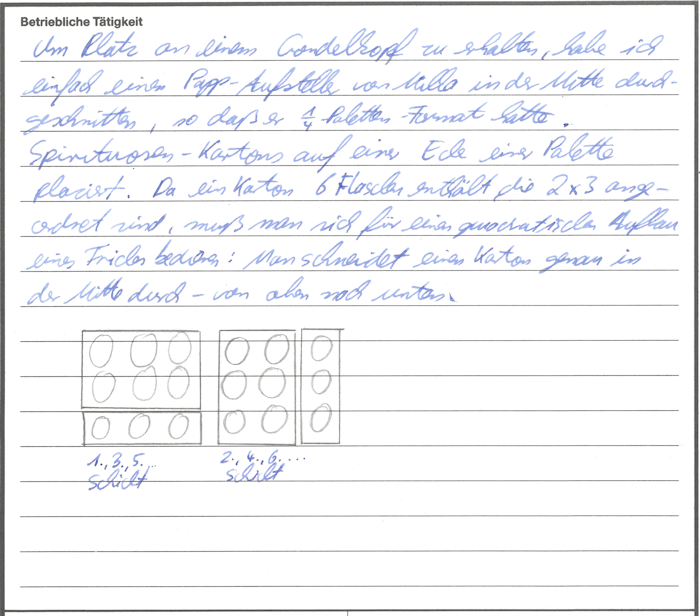 Betriebliche Tätigkeit
Um Platz an einem Gondelkopf zu erhalten, habe ich
einfach einen Papp-Aufsteller von in der Mitte durch-
geschnitten, so daß er 1/4 Paletten-Format hatte.
Spirituosen-Kartons auf einer Ecke einer Palette
placiert. Da ein Katon 6 Flaschen enthält die 2x3 ange-
ordnet sind, muß man sich für einen quadratischen Aufbau
eines Trickes bedienen: Man schneidet einen Katon genau in
der Mitte durch - von oben nach unten.
1., 3., 5. ...
Schicht
2., 4., 6. ...
Schicht